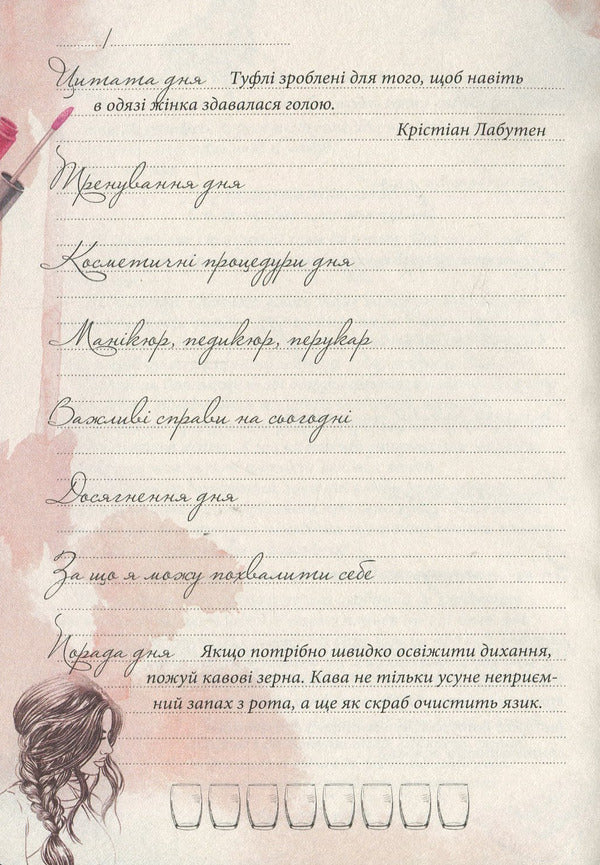 /
Цитата дня Туфлі зроблені для того, щоб навіть
в одязі жінка здавалася голою.
Крістіан Лабутен
Тренування дня
Косметичні процедури дня
Манікюр, педикюр, перукар
Важливі справи на сьогодні
Досягнення дня
За що я можу похвалити себе
Порада дня Якщо потрібно швидко освіжити дихання,
пожуй кавові зерна. Кава не тільки усуне неприєм-
ний запах з рота, а ще як скраб очистить язик.